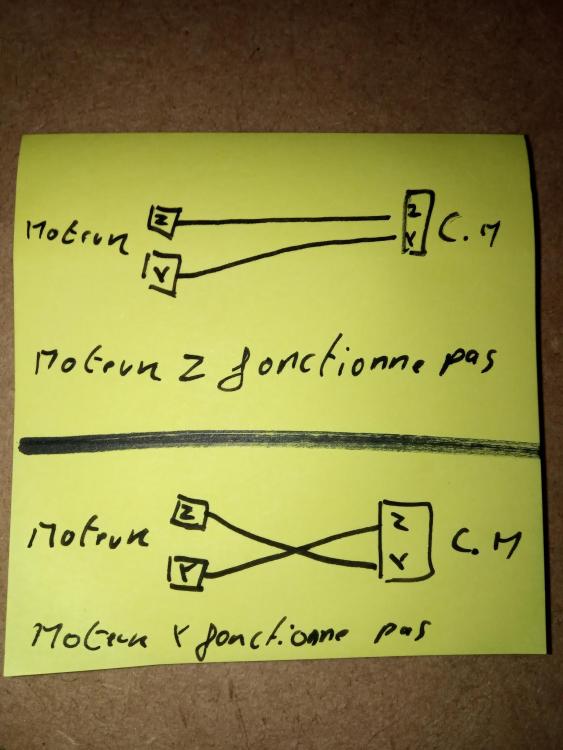 Z
Moteur
Z
Y
C.M
Y
Moteur Z fonctionne pas
Z
Z
Moteur
C.M
Y
Y
Moteur Y fonctionne pas